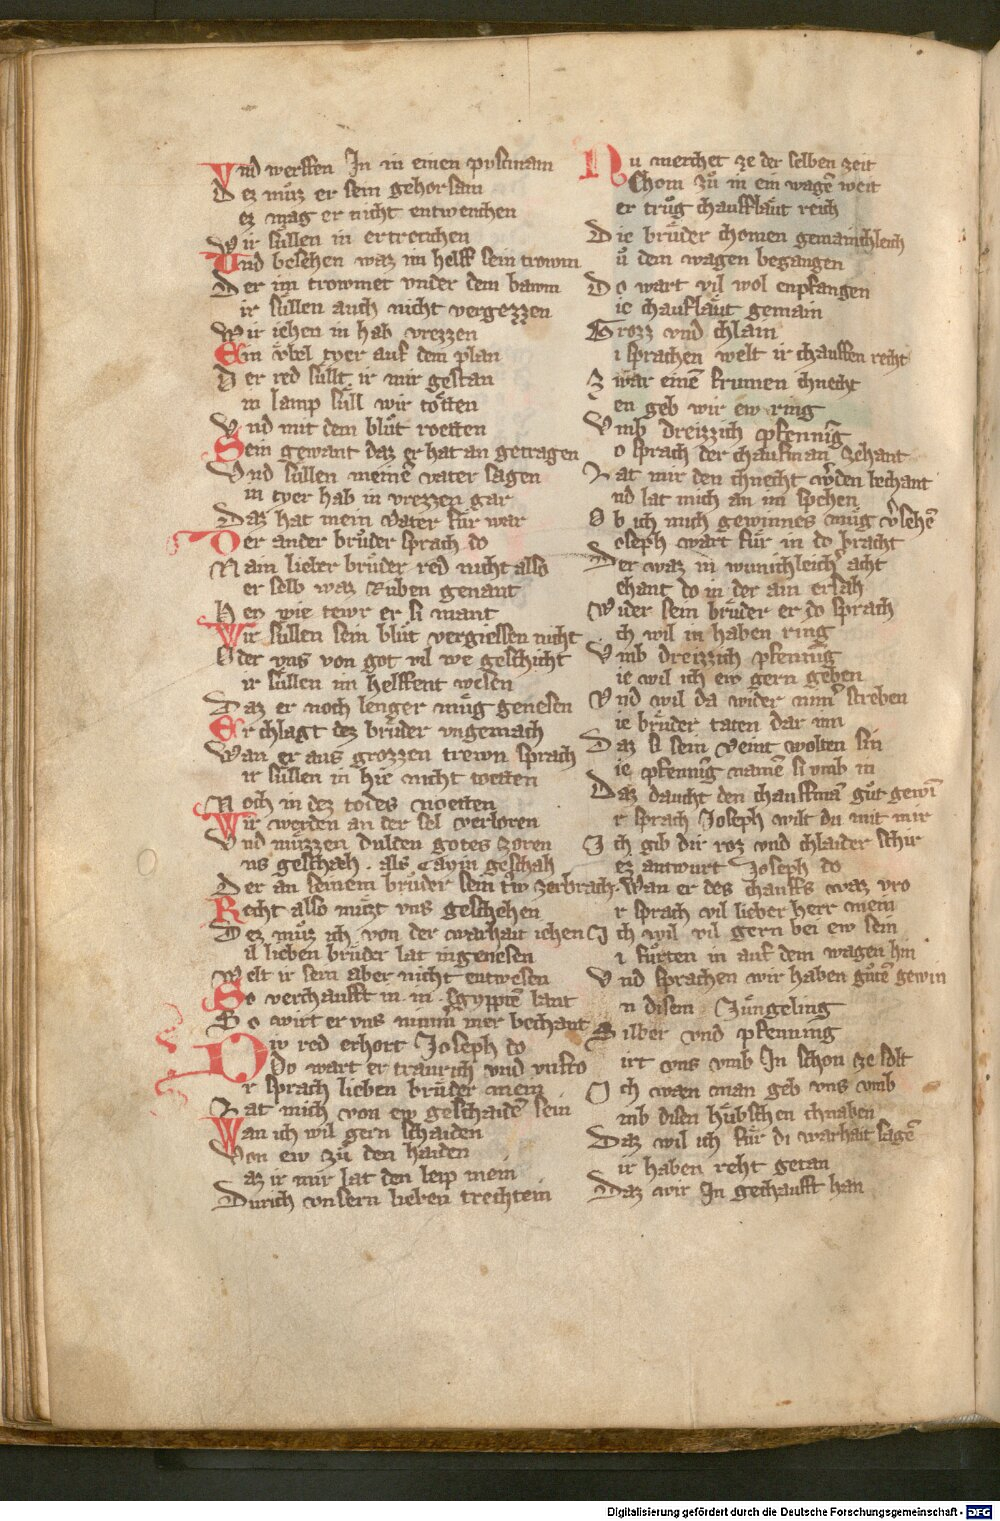 Vnd werffen In in einen pysumam
Dez muͤz er sein gehorsam
ez mag er nicht entweichen
Wir suͤllen in ertrenchen
Vnd besehen waz im helff sein trowm
Der im trowmet vnder dem bawm
ir suͤllen auch nicht vergezzen
Wir iehen in hab vrezzen
Ein vͤbel tyer auf dem plan
Der red suͤllt ir mir gestan
in lamp suͤll wir toͤtten
Vnd mit dem bluͦt roetten
Sein gewant daz er hat an getragen
Vnd suͤllen meinē vater sagen
in tyer hab in vrezzen gar
Daz hat mein Vater fuͤr war
Der ander bruͦder sprach do
Nain lieber bruͦder red nicht also
er selb waz Ruben genant
Hen wie tewr er si mant
Wir suͤllen sein bluͦt vergiessen nicht
Oder vns von got vil we geschicht
ir suͤllen im helffent wesen
Daz er noch lenger muͤg genesen
Er chlagt dez bruͦder vngemach
Wan er aus grozzen trewn sprach
ir suͤllen in hie nicht toetten
Noch in dez todes noetten
Wir werden an der sel verloren
Vnd muͤzzen dulden gotes zoren
ns geschaeh . als Cayin geschah
Der an seinem bruͦder sein trw zerbrach
Recht also muͤzt vns geschehen
Dez muͦz ich von der warhait iehen
il lieben bruͤder lat in genesen
Welt ir sein aber nicht entwesen
So verchaufft in in Egyptē lant
So wirt er vns nimm̄ mer bechant
Div red erhort Joseph do
Do wart er traurich vnd vnfro
r sprach lieben bruͤder mein
Lat mich von ew geschaidē sein
Wan ich wil gern schaiden
Von ew zuͦ den haiden
az ir mir lat den leip mein
Durich vnsern lieben trechtein
Nu merchet ze der selben zeit
Chom zuͦ in ein wagē weit
er truͦg chaufflaͤut reich
Die bruͤder chomen gemainchleich
uͦ dem wagen begangen
Do wart vil wol enpfangen
ie chauflaͤut gemain
Grozz vnd chlain
i sprachen welt ir chauffen recht
Zwar einē frumen chnecht
en geb wir ew ring
Vmb dreizzich pfenning
o sprach der chaufman zehant
Lat mir den chnecht w̄den bechant
nd lat mich an im spehen
Ob ich mich gewinnes muͤg v̄sehē
oseph wart fuͤr in do bracht
Der waz in wunichleich̄ acht
ehant do in der ain ersah
Wider sein bruͤder er do sprach
ch wil in haben ring
Vmb dreizzich pfenning
ie wil ich ew gern geben
Vnd wil da wider nim̄ streben
ie bruͤder taten dar inn
Daz si sein veint wolten sin
ie pfennīg namē si vmb in
Daz daucht den chauffmā guͦt gewī
r sprach Joseph wilt du mit mir
Ich gib dir roz vnd chlaider schir
ez antwurt Joseph do
Wan er des chauffs waz vro
r sprach vil lieber herr mein
Ich wil vil gern bei ew sein
i fuͦrten in auf dem wagen hin
Vnd sprachen wir haben guͦtē gewin
n disem Juͤngeling
Silber vnd pfenning
irt vns vmb In schon ze solt
Ich wan man geb vns vmb
mb disen huͤbschen chnaben
Daz wil ich fuͤr di warhait sagē
ir haben reht getan
Daz wir In gechaufft han
Digitalisierung gefördert durch die Deutsche Forschungsgemeinschaft - DFG